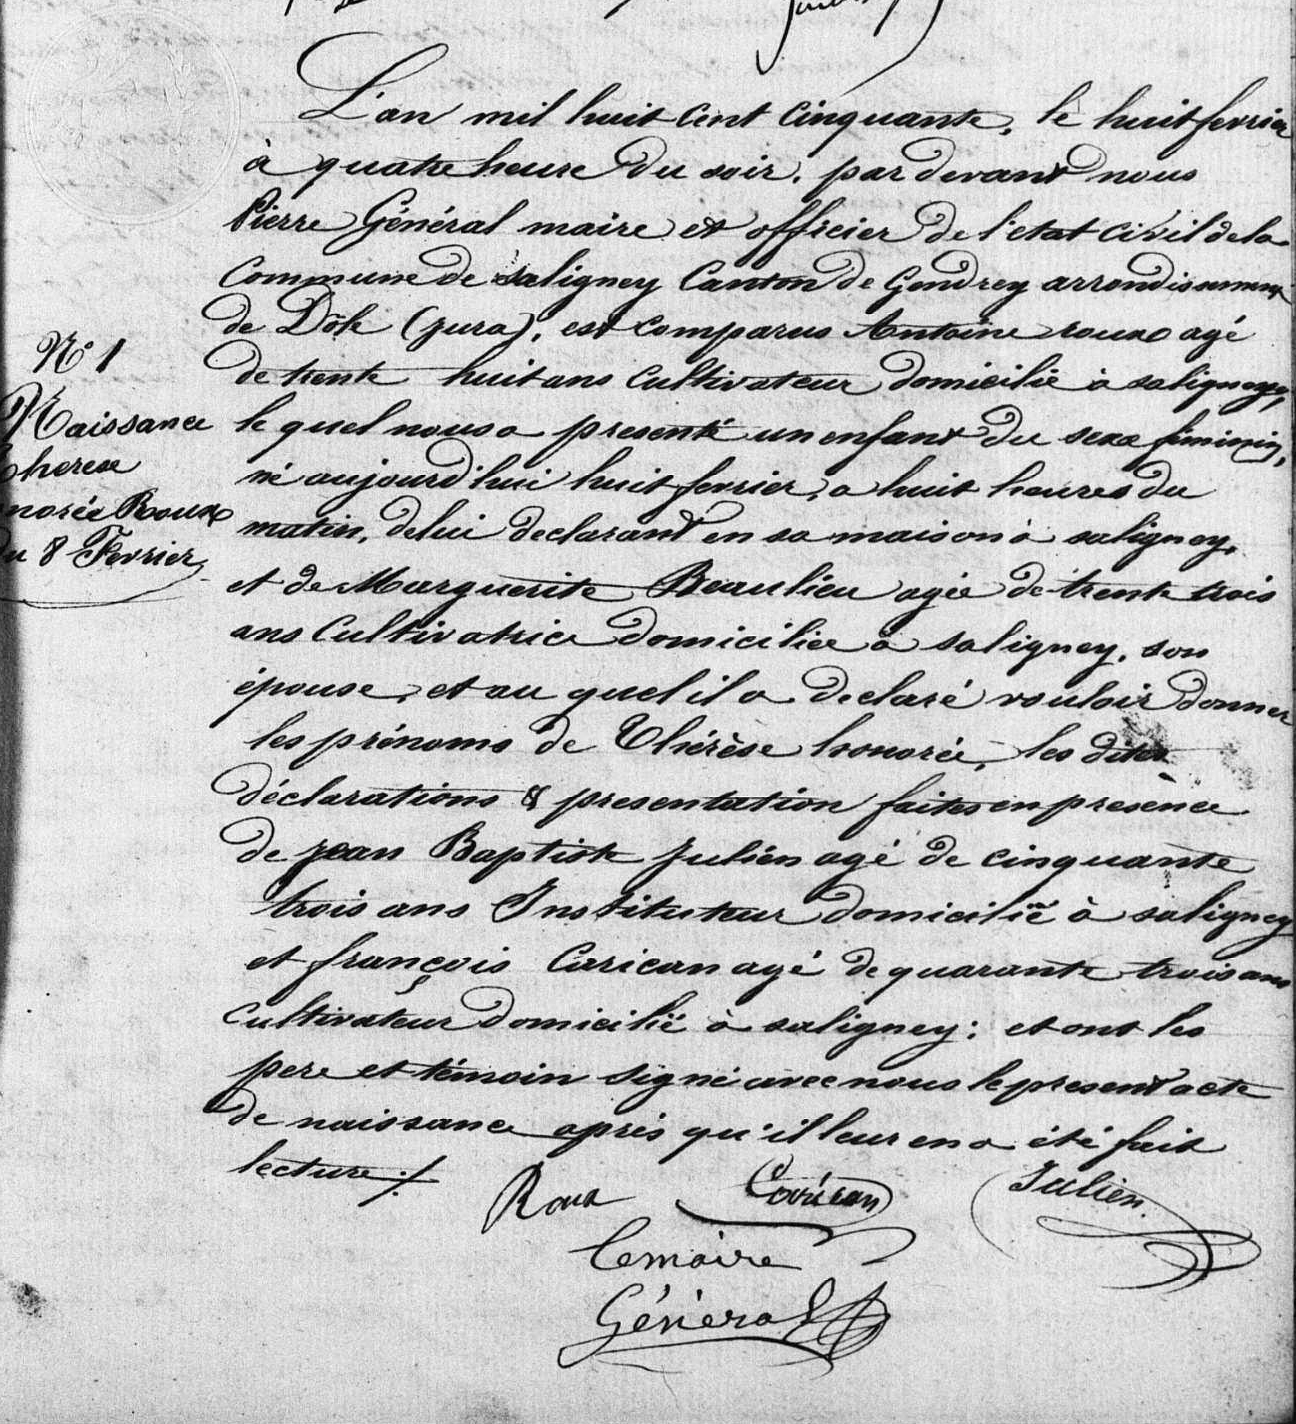 L'an mil huit cent cinquante, le huit fevrier
à quatre heure du soir, par devant nous
Pierre Général maire et officier de l'etat civil de la
Commune de saligney Canton de Gendrey arrondissement
de Dôle (jura), est comparus Antoine roux agé
de trente huit ans Cultivateur domicilié à saligney,
le quel nous a presenté un enfant du sexe féminin,
né aujourd'hui huit fevrier, a huit heures du
matin, de lui declarant en sa maison à saligney,
et de Marguerite Beaulieu agée de trente trois
ans Cultivatrice domiciliée à saligney, son
épouse, et au quel il a declaré vouloir donner
les prénoms de Thérèse honorée, les dites
déclarations & presentation faites en presence
de jean Baptiste julien agé de cinquante
trois ans Instituteur domicilié à saligney
et françois Carican agé de quarante trois ans
Cultivateur domicilié à saligney; et ont les
pere et témoin signé avec nous le present acte
de naissance après qu'il leur en a été fait
lecture ./.
N° 1
Naissance
Therese
norée Roux
du 8 Fevrier
Roux Julien.
Le maire
Général